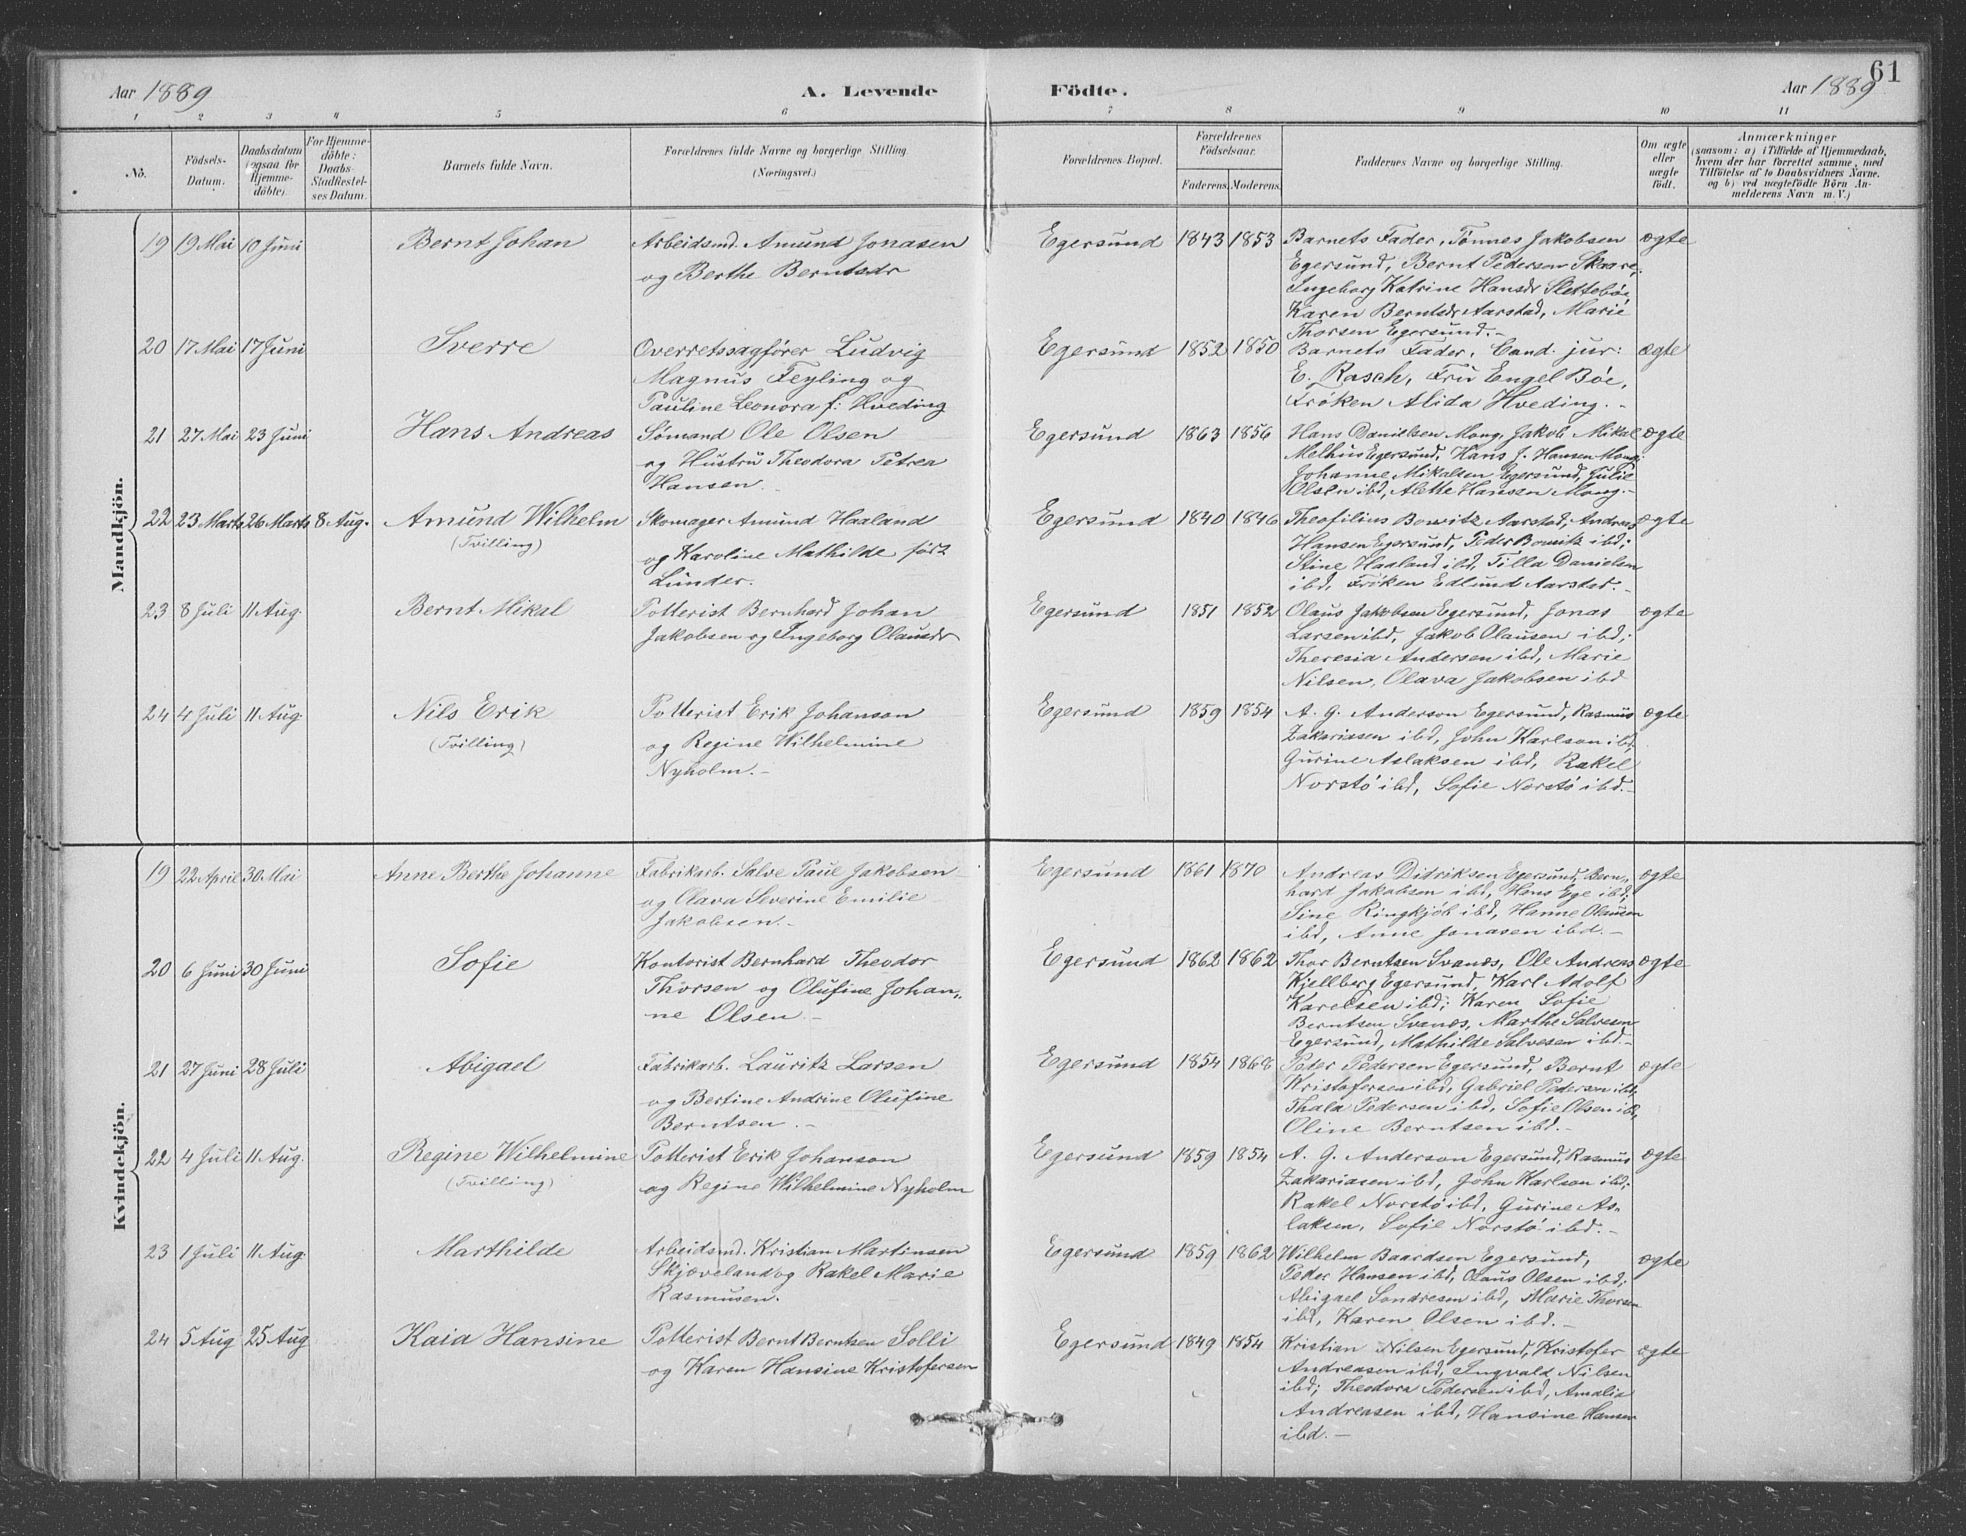 61
Aar 1889 A. Levende Födte. Aar 1889
1 2 3 4 5 6 7 8 9 10 11
No. Födsels-Datum. Daabsdatum (ogsaa for Hjemme-döbte). For Hjemme-döbte: Daabs-Stadfæstel-ses Datum. Barnets fulde Navn. Forældrenes fulde Navne og borgerlige Stilling (Næringsvei.) Forældrenes Bopæl. Forældrenes Födselsaar. Faderens. Moderens. Faddernes Navne og borgerlige Stilling. Om ægte eller uægte födt. Anmærkninger
(saasom: a) i Tilfælde af Hjemmedaab,
hvem der har forrettet samme, med
Tilföielse af to Daabsvidners Navne.
og b) ved uægtefödte Börn An-
melderens Navn m. V.)
Mandkjön.
19 19 Mai 10 Juni Bernt Johan Arbeidsmd. Amund Jonasen Egersund 1843 1853 Barnets Fader, Tönnes Jakobsen ægte
og Berthe Berntsdr Egersund, Bernt Pedersen Skaare,
Ingeborg Katrine Hansdr Sletteböe,
Karen Berntsdr Aarstad, Marie
Thorsen Egersund.-
20 17 Mai 17 Juni Sverre Overretssagförer Ludvig Egersund 1852 1850 Barnets Fader, Cand. jur: ægte
Magnus Feyling og E. Rasch, Fru Engel Böe,
Pauline Leonora f: Hveding Fröken Alida Hveding.-
21 27 Mai 23 Juni Hans Andreas Sömand Ole Olsen Egersund 1863 1856 Hans Danielsen Mong, Jakob Mikal ægte
og Hustru Theodora Petrea Melhus Egersund, Hans J. Hansen Mong,
Hansen.- Johanne Mikalsen Egersund, Julie
Olsen ibd, Alette Hansen Mong.-
22 23 Marts 26 Marts 8 Aug. Amund Wilhelm Skomager Amund Haaland Egersund 1840 1846 Theofilius Bowitz Aarstad, Andreas ægte
(Tvilling) og Karoline Mathilde födt Hansen Egersund, Peder Bowitz ibd;
Lunder. Stine Haaland ibd, Tilla Danielsen
ibd, Fröken Edlund Aarstad.-
23 8 Juli 11 Aug. Bernt Mikal Potterist Bernhard Johan Egersund 1851 1852 Olaus Jakobsen Egersund, Jonas ægte
Jakobsen og Ingeborg Olausdr Larsen ibd, Jakob Olausen ibd;
Theresia Andersen ibd, Marie
Nilsen, Olava Jakobsen ibd
24 4 Juli 11 Aug Nils Erik Potterist Erik Johanson Egersund 1859 1854 A. G. Anderson Egersund, Rasmus ægte
(Tvilling) og Regine Wilhelmine Zakariasen ibd, John Karlson ibd,
Nyholm.- Gurine Aslaksen ibd, Rakel
Norstö ibd, Sofie Norstö ibd.-
Kvindekjön.
19 22 April 30 Mai Anne Berthe Johanne Fabrikarb. Salve Paul Jakobsen Egersund 1861 1870 Andreas Didriksen Egersund, Bern- ægte
og Olava Severine Emilie hard Jakobsen ibd, Hans Ege ibd;
Jakobsen.- Sine Ringkjöb ibd, Hanne Olausen
ibd, Anne Jonasen ibd.-
20 6 Juni 30 Juni Sofie Kontorist Bernhard Theodor Egersund 1862 1862 Thor Berntsen Svanes, Ole Andreas ægte
Thorsen og Olufine Johan- Kjellberg Egersund, Karl Adolf
ne Olsen.- Karelsen ibd; Karen Sofie
Berntsen Svanes, Marthe Salvesen
Egersund, Mathilde Salvesen ibd.-
21 27 Juni 28 Juli Abigael Fabrikarb. Lauritz Larsen Egersund 1854 1868 Peter Pedersen Egersund, Bernt ægte
og Bertine Andrine Olufine Kristofersen ibd, Gabriel Pedersen ibd;
Berntsen.- Thala Pedersen ibd, Sofie Olsen ibd,
Oline Berntsen ibd.-
22 4 Juli 11 Aug. Regine Wilhelmine Potterist Erik Johanson Egersund 1859 1854 A. G. Anderson Egersund, Rasmus ægte
(Tvilling) og Regine Wilhelmine Nyholm Zakariasen ibd, John Karlson ibd;
Rakel Norstö ibd, Gurine As-
laksen, Sofie Norstö ibd.-
23 1 Juli 11 Aug. Marthilde Arbeidsmd. Kristian Martinsen Egersund 1859 1862 Wilhelm Baardsen Egersund, ægte
Skjæveland og Rakel Marie Peder Hansen ibd, Olaus Olsen ibd;
Rasmusen. Abigael Sondresen ibd, Marie Thorsen
ibd, Karen Olsen ibd.-
24 5 Aug 25 Aug Kaia Hansine Potterist Bernt Berntsen Solli Egersund 1849 1854 Kristian Nilsen Egersund, Kristofer ægte
og Karen Hansine Kristofersen Andreasen ibd, Ingvald Nilsen
ibd; Theodora Pedersen ibd, Amalia
Andreasen ibd, Hansine Hansen
ibd.-